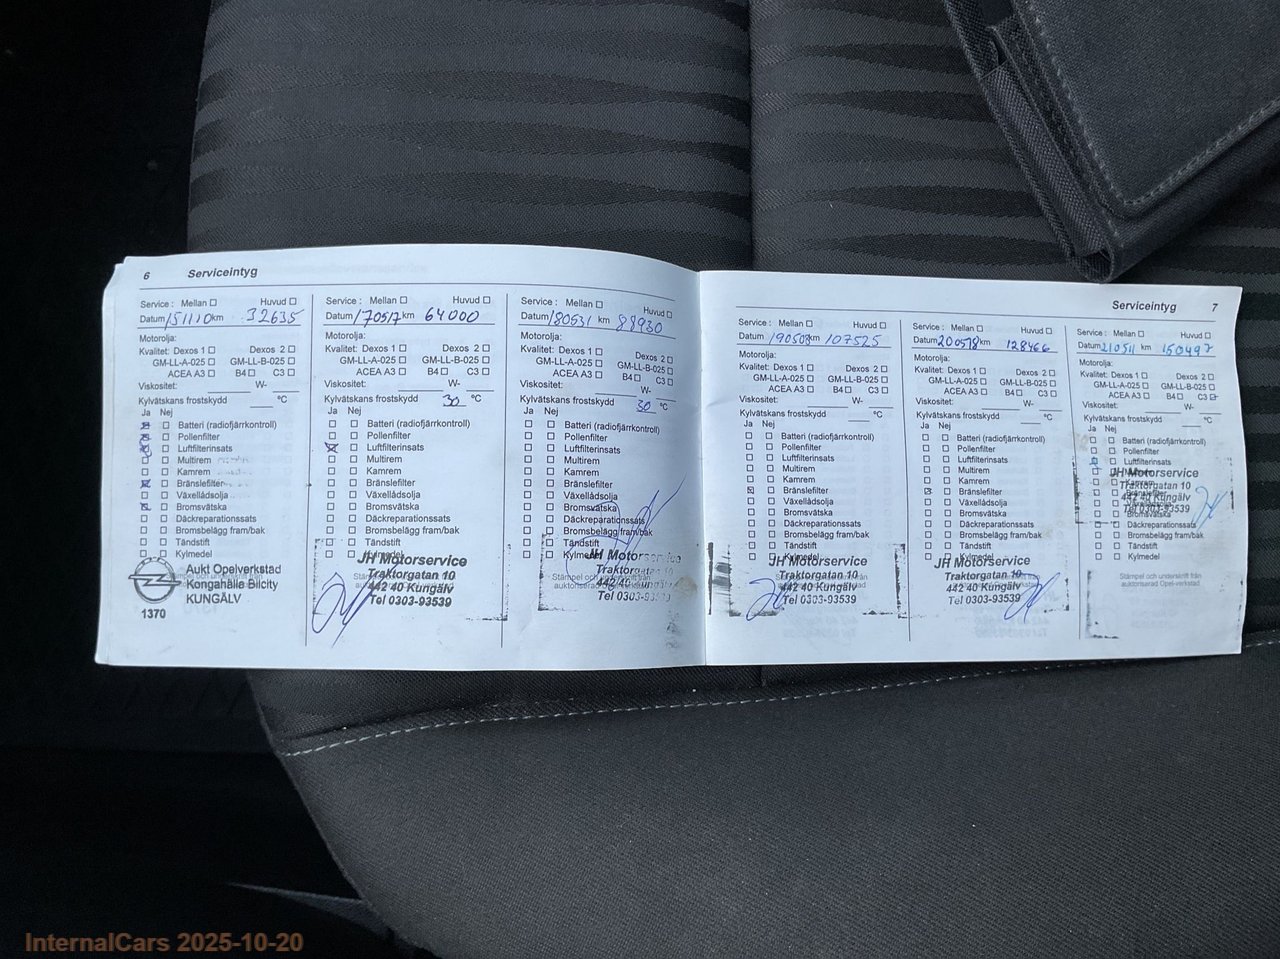 6 Serviceintyg
Service : Mellan Huvud
Datum 151110 km 32635
Motorolja:
Kvalitet: Dexos 1 Dexos 2
GM-LL-A-025 GM-LL-B-025
ACEA A3 B4 C3
Viskositet: W-
Kylvätskans frostskydd °C
Ja Nej
Batteri (radiofjärrkontroll)
Pollenfilter
Luftfilterinsats
Multirem
Kamrem
Bränslefilter
Växellådsolja
Bromsvätska
Däckreparationssats
Bromsbelägg fram/bak
Tändstift
Kylmedel
Aukt Opelverkstad
Kongahälle Bilcity
KUNGÄLV
1370
Service : Mellan Huvud
Datum 170517 km 64000
Motorolja:
Kvalitet: Dexos 1 Dexos 2
GM-LL-A-025 GM-LL-B-025
ACEA A3 B4 C3
Viskositet: W-
Kylvätskans frostskydd 30 °C
Ja Nej
Batteri (radiofjärrkontroll)
Pollenfilter
Luftfilterinsats
Multirem
Kamrem
Bränslefilter
Växellådsolja
Bromsvätska
Däckreparationssats
Bromsbelägg fram/bak
Tändstift
Kylmedel
JH Motorservice
Traktorgatan 10
442 40 Kungälv
Tel 0303-93539
Service : Mellan Huvud
Datum 180531 km 88930
Motorolja:
Kvalitet: Dexos 1 Dexos 2
GM-LL-A-025 GM-LL-B-025
ACEA A3 B4 C3
Viskositet: W-
Kylvätskans frostskydd 30 °C
Ja Nej
Batteri (radiofjärrkontroll)
Pollenfilter
Luftfilterinsats
Multirem
Kamrem
Bränslefilter
Växellådsolja
Bromsvätska
Däckreparationssats
Bromsbelägg fram/bak
Tändstift
Kylmedel
JH Motorservice
Traktorgatan 10
442 40 Kungälv
Tel 0303-93539
Serviceintyg 7
Service : Mellan Huvud
Datum 190508 km 107525
Motorolja:
Kvalitet: Dexos 1 Dexos 2
GM-LL-A-025 GM-LL-B-025
ACEA A3 B4 C3
Viskositet: W-
Kylvätskans frostskydd °C
Ja Nej
Batteri (radiofjärrkontroll)
Pollenfilter
Luftfilterinsats
Multirem
Kamrem
Bränslefilter
Växellådsolja
Bromsvätska
Däckreparationssats
Bromsbelägg fram/bak
Tändstift
Kylmedel
JH Motorservice
Traktorgatan 10
442 40 Kungälv
Tel 0303-93539
Service : Mellan Huvud
Datum 200518 km 128466
Motorolja:
Kvalitet: Dexos 1 Dexos 2
GM-LL-A-025 GM-LL-B-025
ACEA A3 B4 C3
Viskositet: W-
Kylvätskans frostskydd °C
Ja Nej
Batteri (radiofjärrkontroll)
Pollenfilter
Luftfilterinsats
Multirem
Kamrem
Bränslefilter
Växellådsolja
Bromsvätska
Däckreparationssats
Bromsbelägg fram/bak
Tändstift
Kylmedel
JH Motorservice
Traktorgatan 10
442 40 Kungälv
Tel 0303-93539
Service : Mellan Huvud
Datum 210511 km 150497
Motorolja:
Kvalitet: Dexos 1 Dexos 2
GM-LL-A-025 GM-LL-B-025
ACEA A3 B4 C3
Viskositet: W-
Kylvätskans frostskydd °C
Ja Nej
Batteri (radiofjärrkontroll)
Pollenfilter
Luftfilterinsats
JH Motorservice
Kamrem
Traktorgatan 10
Bränslefilter
442 40 Kungälv
Tel 0303-93539
Bromsvätska
Däckreparationssats
Bromsbelägg fram/bak
Tändstift
Kylmedel
Stämpel och underskrift från
auktoriserad Opel-verkstad.
InternalCars 2025-10-20